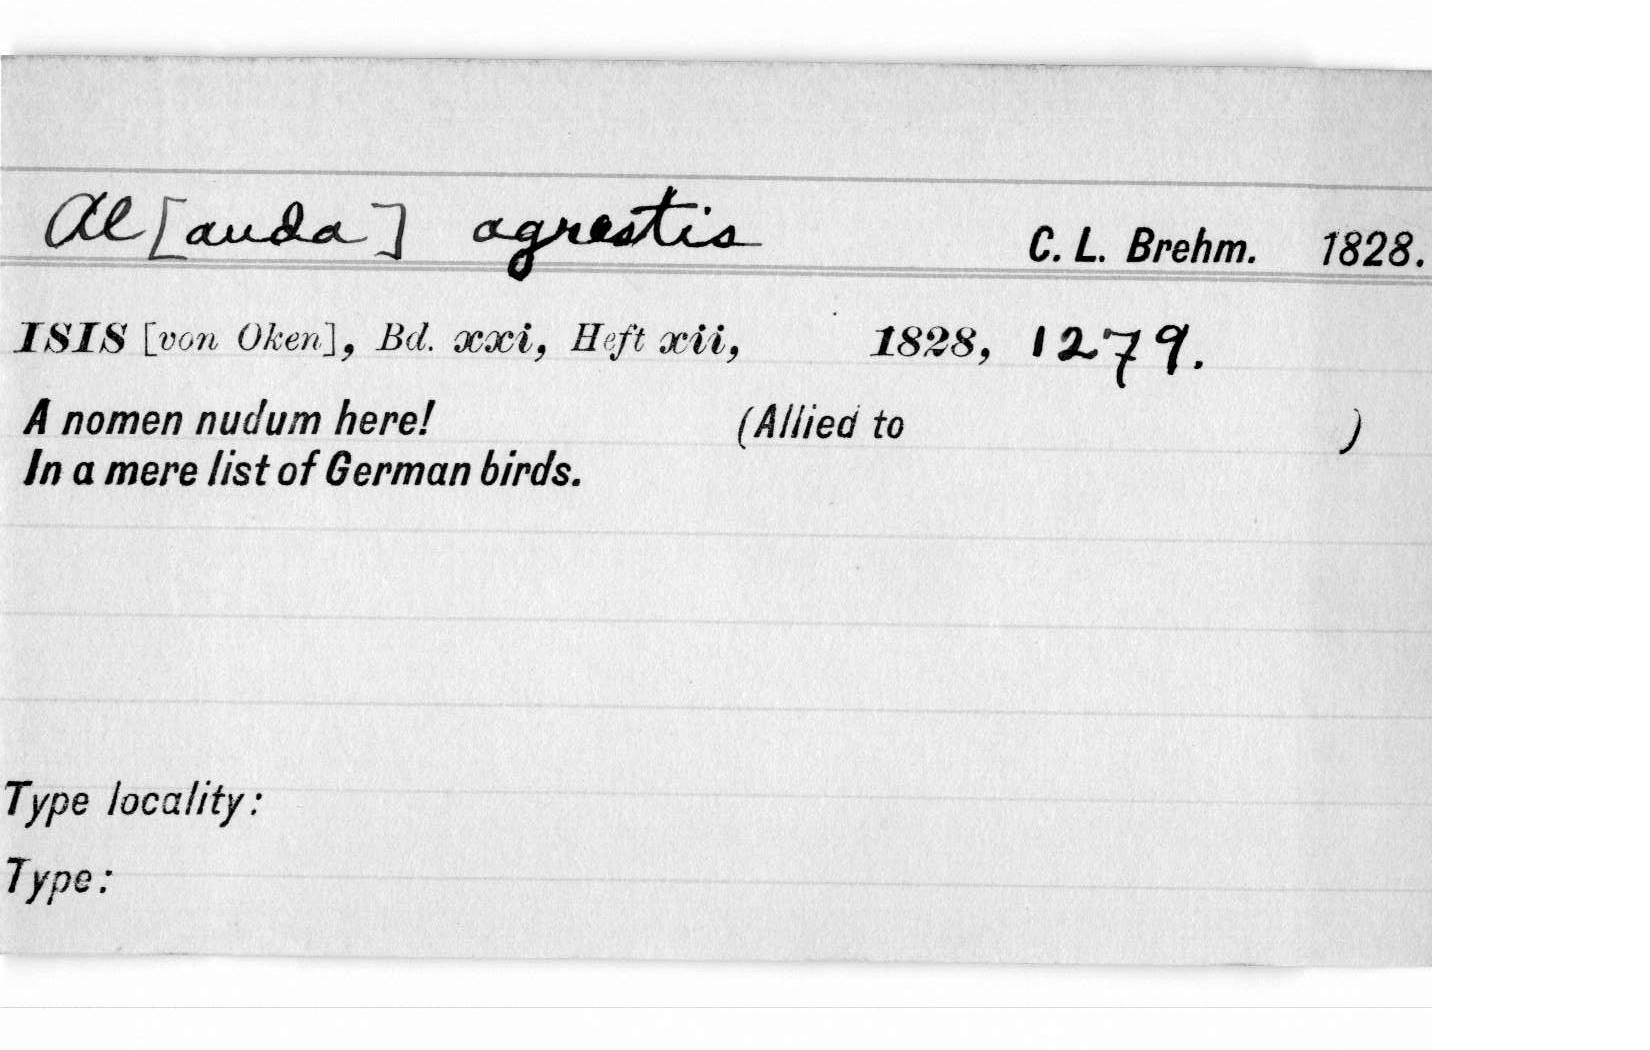 Al[auda] agrestis C. L. Brehm. 1828.
ISIS [von Oken], Bd. xxi, Heft xii, 1828, 1279.
A nomen nudum here! (Allied to )
In a mere list of German birds.
Type locality:
Type: